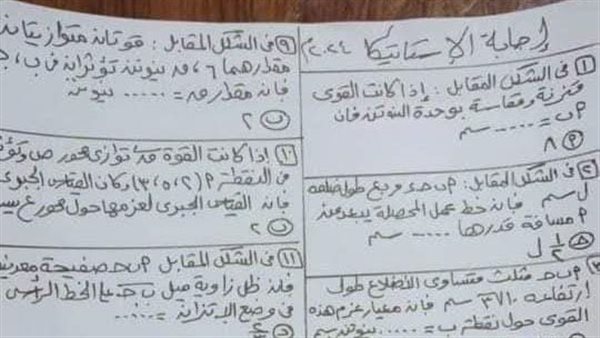 إجابة الإستاتيكا ٢٠٢٤م
١ في الشكل المقابل : إذا كانت القوى
متزنة ومقاسة بوحدة النيوتن فإن
P ب = ..... سم
P ٨
٢ في الشكل المقابل : P ب ح د مربع طول ضلعه
ل سم فإن خط عمل المحصلة يبعد عن
P مسافة قدرها ..... سم
١/٢ ل
٣
P ب ح مثلث متساوي الأضلاع طول
ارتفاعه ١٠√٣ سم فإن معيار عزم هذه
القوى حول نقطة ب = ..... نيوتن.سم
٩ في الشكل المقابل : قوتان متوازيتان
مقدارهما ٦ ، ف نيوتن تؤثران في ب ،
فإن مقدار ف = ..... نيوتن
ب ٢
١٠ إذا كانت القوة ف توازي محور ص وتؤثر
في النقطة P (٢، ٥، ٣) وكان القياس الجبري
فإن القياس الجبري لعزمها حول محور ع يس
٢
١١ في الشكل المقابل P ب ح صفيحة معدنية
فإن ظل زاوية ميل ب ح على الخط الرأسي
في وضع الاتزان = .....